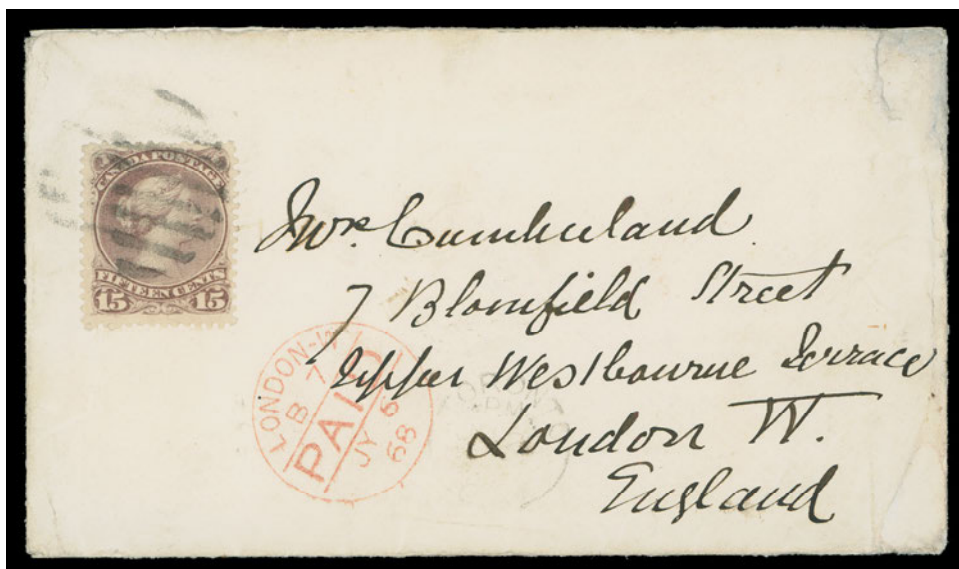 CANADA POSTAGE
FIFTEEN CENTS
15 15
Mrs. Cumberland
7 Blomfield Street
Upper Westbourne Terrace
London W.
England
LONDON-W
B 7
PAID
JY 6
68